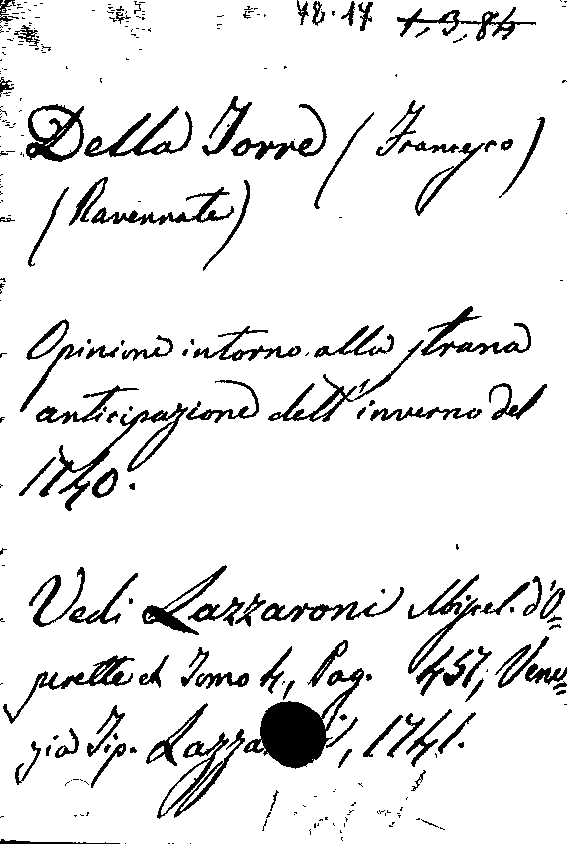 78.17 1,3,84
Della Torre (Francesco)
(Ravennate)
Opinione intorno alla strana
anticipazione dell'inverno del
1740.
Vedi Lazzaroni Miscel. d'O=
perette et Tomo 4, Pag. 457, Vene=
zia Tip. Lazza i, 1741.